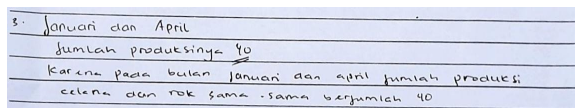 3. Januari dan April
Jumlah produksinya 40
Karena pada bulan Januari dan april jumlah produksi
celana dan rok sama-sama berjumlah 40